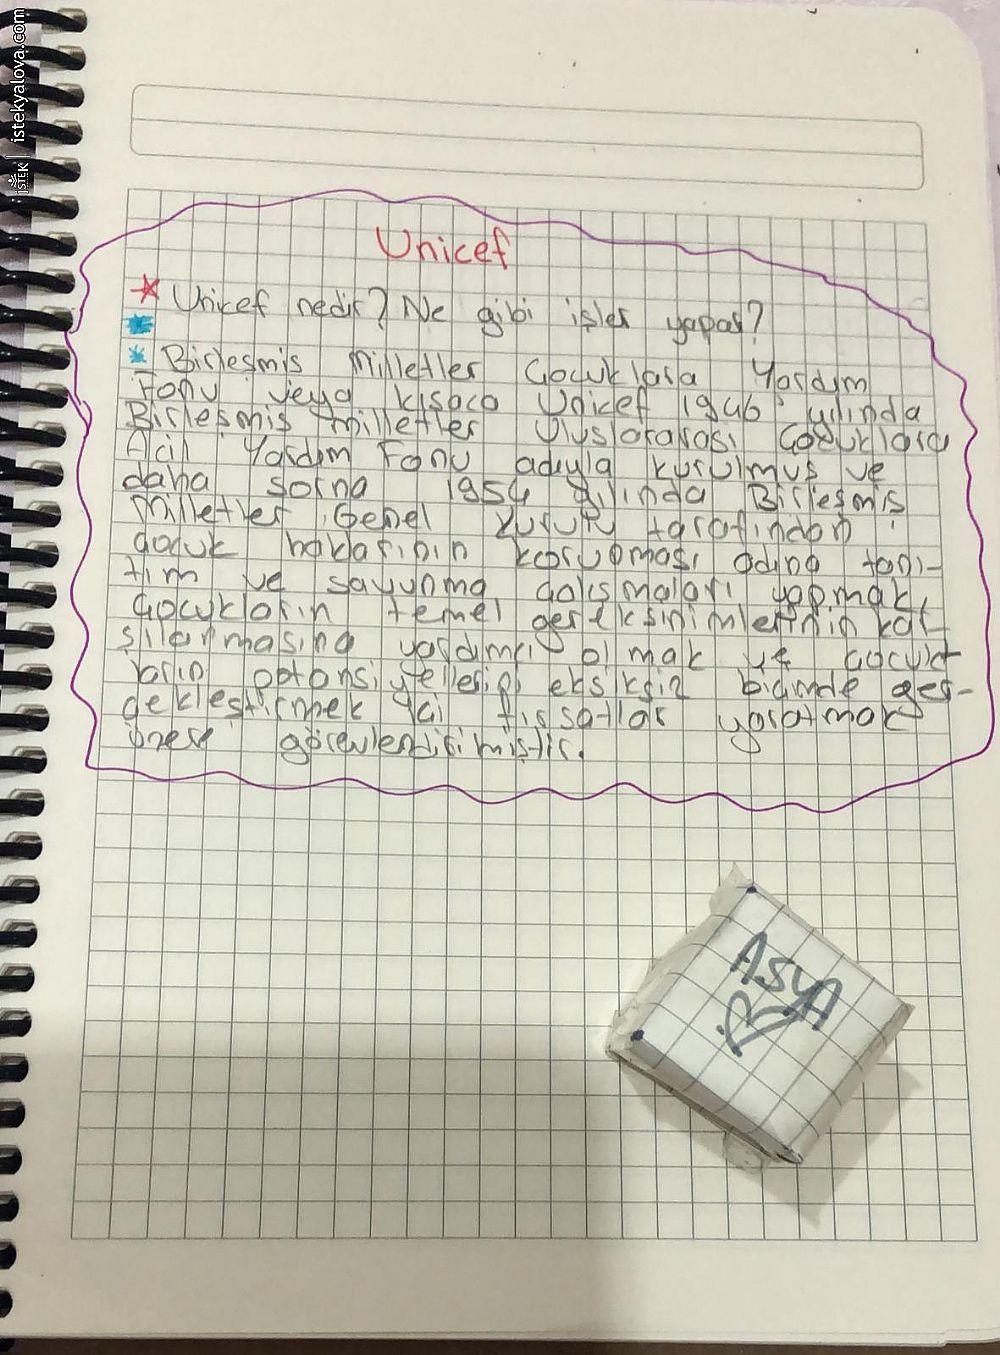 istekyalova.com
iSTEK
Unicef
Unicef nedir? Ne gibi işler yapar?
Birleşmis Milletler Çocuklara Yardım
Fonu veya kısaca Unicef 1946 yılında
Birleşmis Milletler Uluslararası Çocuklara
Acil Yardım Fonu adıyla kurulmuş ve
daha sorna 1954 yılında Birleşmiş
Milletler Genel kurulu tarafından
çocuk haklarının korunması adına tanı-
tım ve savunma çalışmaları yapmak,
Çocukların temel gereksinimlerinin kar-
şılanmasına yardımcı olmak ve çocuk-
ların optansiyellerini eksiksiz biçimde ger-
çekleştirmek için fırsatlar yaratmak
üzere görevlendirilmiştir.
ASYA